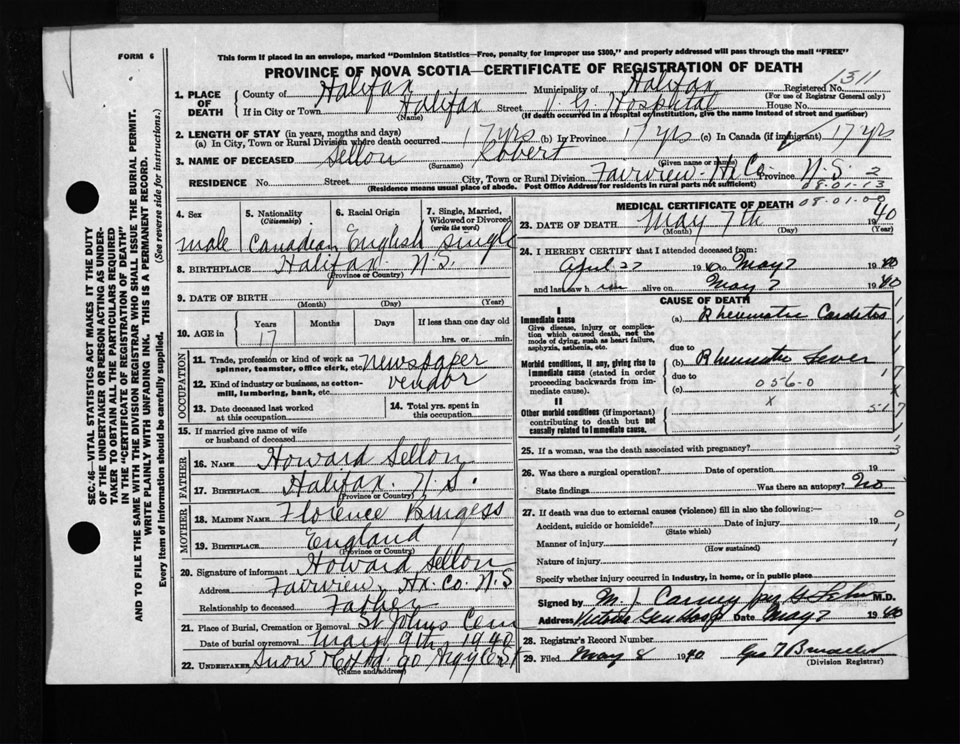 FORM 6
This form if placed in an envelope, marked "Dominion Statistics—Free, penalty for improper use $300," and properly addressed will pass through the mail "FREE"
PROVINCE OF NOVA SCOTIA—CERTIFICATE OF REGISTRATION OF DEATH
1311
1. PLACE OF DEATH
County of Halifax Municipality of Halifax Registered No.
(For use of Registrar General only)
If in City or Town Halifax Street V. G. Hospital House No.
(Name) (If death occurred in a hospital or institution, give the name instead of street and number)
2. LENGTH OF STAY (in years, months and days)
(a) In City, Town or Rural Division where death occurred 17 yrs (b) In Province 17 yrs (c) In Canada (if immigrant) 17 yrs
3. NAME OF DECEASED Sellon Robert
(Surname) (Given name or names)
RESIDENCE No. Street City, Town or Rural Division Fairview Hx Co. Province N.S. 2
(Residence means usual place of abode. Post Office Address for residents in rural parts not sufficient)
08-01-13
4. Sex
male
5. Nationality
(Citizenship)
Canadian
6. Racial Origin
English
7. Single, Married, Widowed or Divorced
(write the word)
single
8. BIRTHPLACE Halifax N.S.
(Province or Country)
9. DATE OF BIRTH
(Month) (Day) (Year)
10. AGE in
Years Months Days If less than one day old
17 hrs. or min.
OCCUPATION
11. Trade, profession or kind of work as spinner, teamster, office clerk, etc. newspaper
12. Kind of industry or business, as cotton-mill, lumbering, bank, etc. vendor
13. Date deceased last worked at this occupation
14. Total yrs. spent in this occupation
15. If married give name of wife or husband of deceased
FATHER
16. NAME Howard Sellon
17. BIRTHPLACE Halifax. N.S.
(Province or Country)
MOTHER
18. MAIDEN NAME Florence Burgess
19. BIRTHPLACE England
(Province or Country)
20. Signature of informant Howard Sellon
Address Fairview, Hx. Co. N.S
Relationship to deceased Father
21. Place of Burial, Cremation or Removal St Johns Cem
Date of burial or removal May 9th, 1940
22. UNDERTAKER Snow & Co Ltd. 90 Argyle St
(Name and address)
MEDICAL CERTIFICATE OF DEATH
08-01-00
23. DATE OF DEATH May 7th 40
(Month) (Day) (Year)
24. I HEREBY CERTIFY that I attended deceased from:
April 27 1940 to May 7 1940
and last saw him alive on May 7 1940
CAUSE OF DEATH
I
Immediate cause
Give disease, injury or complication which caused death, not the mode of dying, such as heart failure, asphyxia, asthenia, etc.
(a) Rheumatic Carditis
due to
Morbid conditions, if any, giving rise to immediate cause (stated in order proceeding backwards from immediate cause).
(b) Rheumatic Fever
due to
(c) 056-0
x
II
Other morbid conditions (if important) contributing to death but not causally related to immediate cause.
25. If a woman, was the death associated with pregnancy?
26. Was there a surgical operation? Date of operation 19
State findings Was there an autopsy? No
27. If death was due to external causes (violence) fill in also the following:—
Accident, suicide or homicide? Date of injury 19
(State which)
Manner of injury
(How sustained)
Nature of injury
Specify whether injury occurred in industry, in home, or in public place
Signed by M. J. Carney per M.D.
Address Victoria Gen Hosp Date May 7 1940
28. Registrar's Record Number
29. Filed May 8 1940
(Division Registrar)
SEC. '46—VITAL STATISTICS ACT MAKES IT THE DUTY
OF THE UNDERTAKER OR PERSON ACTING AS UNDER-
TAKER TO OBTAIN ALL THE PARTICULARS REQUIRED
IN THE "CERTIFICATE OF REGISTRATION OF DEATH"
AND TO FILE THE SAME WITH THE DIVISION REGISTRAR WHO SHALL ISSUE THE BURIAL PERMIT.
WRITE PLAINLY WITH UNFADING INK. THIS IS A PERMANENT RECORD.
Every item of information should be carefully supplied. (See reverse side for instructions.)